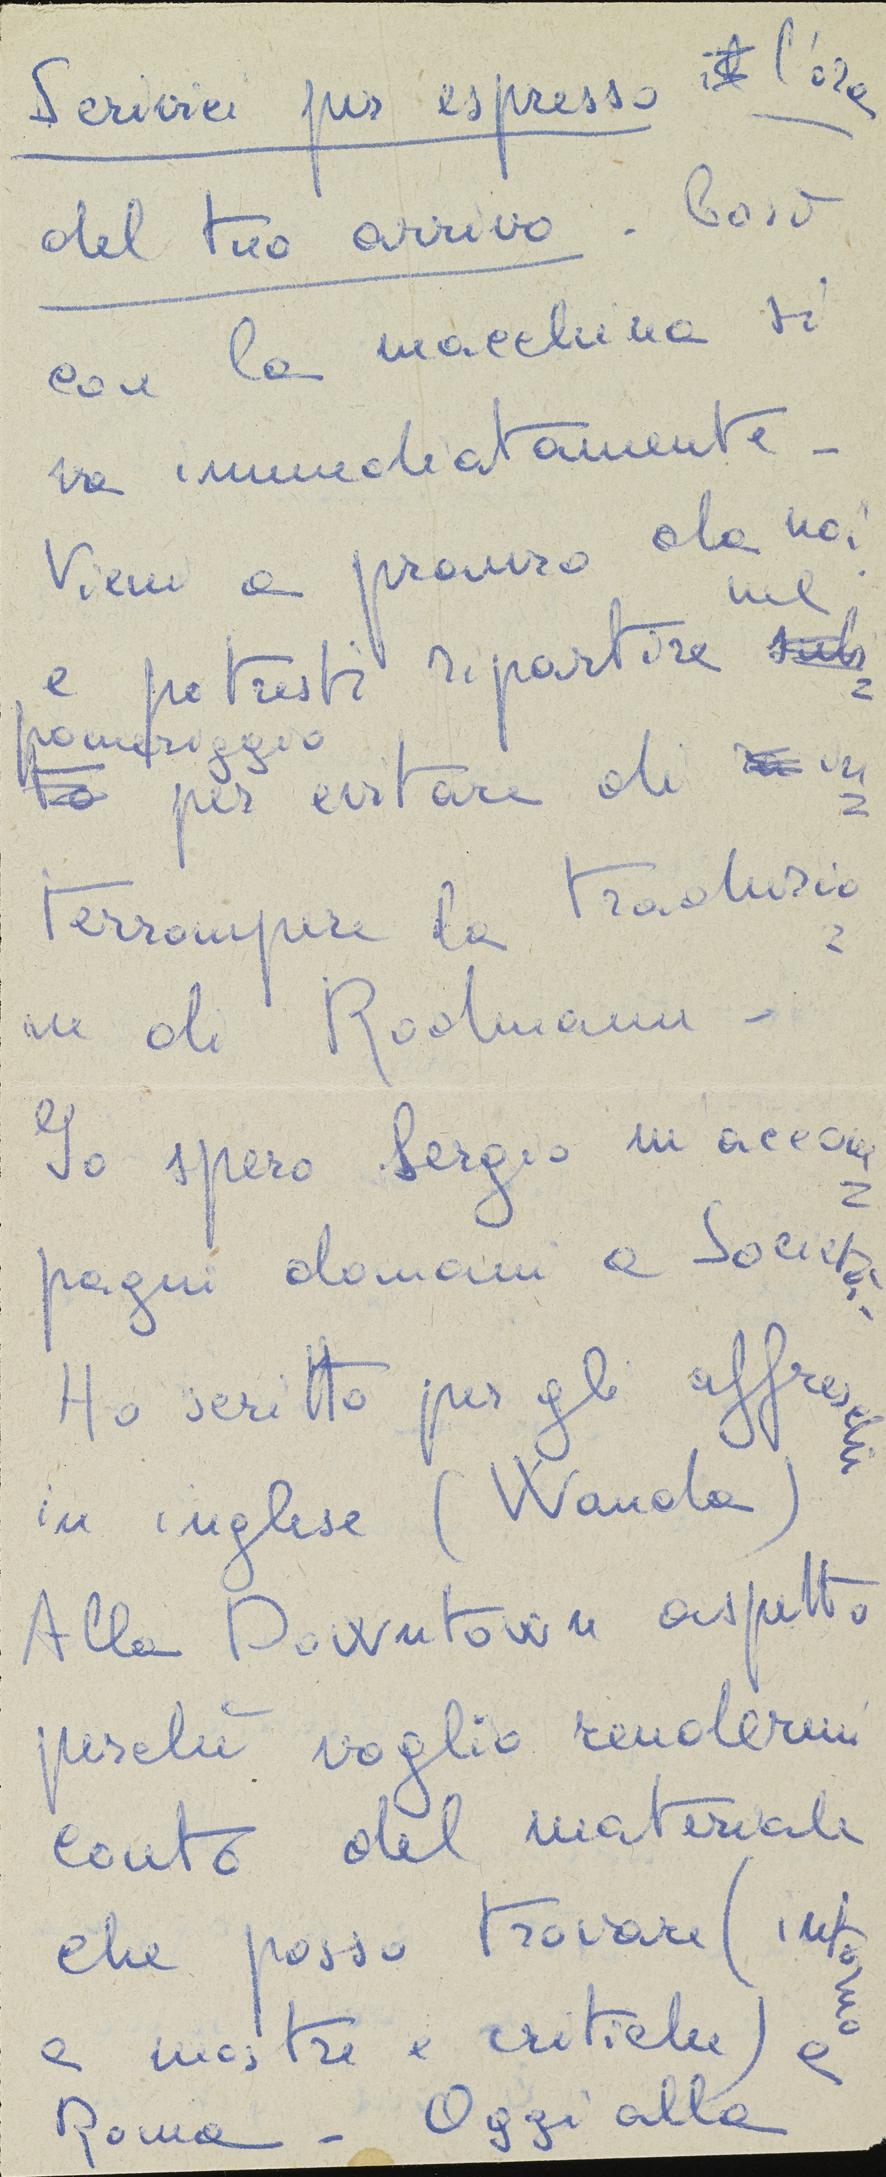 Scrivici per espresso l'ora
del tuo arrivo. Così
con la macchina si
va immediatamente -
Vieni a pranzo da noi
e potresti ripartire nel
pomeriggio
per evitare di in=
terrompere la traduzio=
ne di Rodmann -
Io spero Sergio m'accom=
pagni domani a Società.
Ho scritto per gli affreschi
in inglese (Wanda)
Alla Downtown aspetto
perchè voglio rendermi
conto del materiale
che posso trovare (intorno
a mostre e critiche) a
Roma - Oggi alla